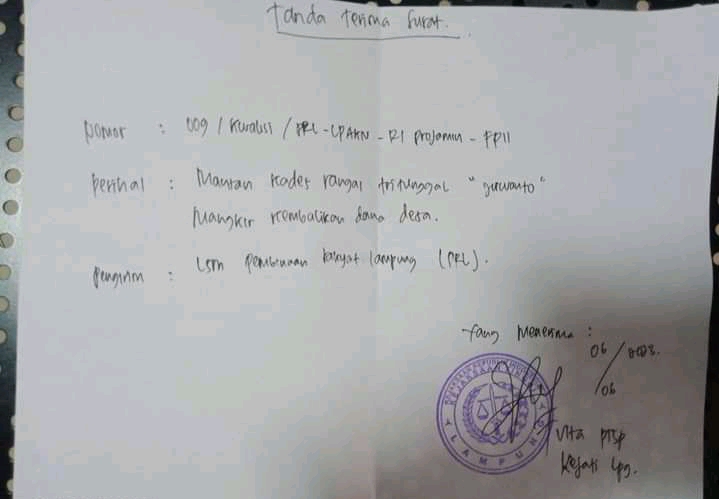 Tanda terima surat.
Nomor : 009 / Koalisi / PRL - LPAKN - RI Projamin - FPII
Perihal : Mantan Kades rangai tritunggal "
Mangkir Kembalikan dana desa.
Pengirim : LSM Pembinaan Rakyat Lampung (PRL).
Yang Menerima :
06 /
/ 06
KEJAKSAAN TINGGI
LAMPUNG
Vita PTSP
Kejati Lpg.